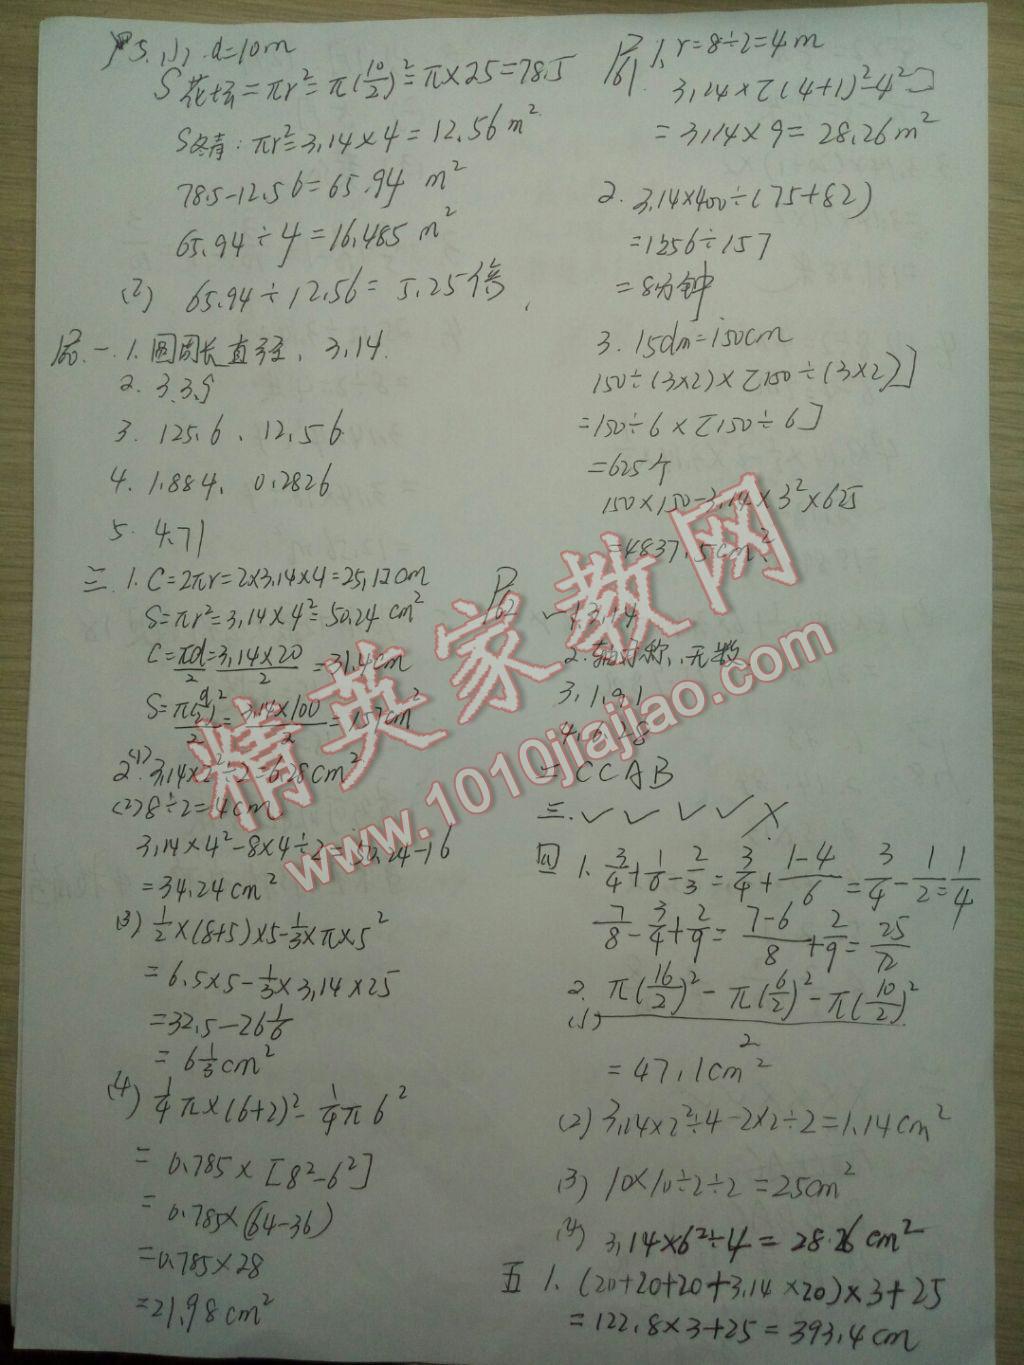 P5. (1). d=10m
S花坛=πr²=π(10/2)²=π×25=78.5
S冬青:πr²=3.14×4=12.56m²
78.5-12.56=65.94 m²
65.94÷4=16.485 m²
(2) 65.94÷12.56=5.25倍
一.1.圆周长直径、3.14.
2. 3.3.5
3. 125.6、12.56
4. 1.884、0.2826
5. 4.71
三.1. C=2πr=2×3.14×4=25.12cm
S=πr²=3.14×4²=50.24 cm²
C=πd/2=3.14×20/2=31.4cm
S=π(d/2)²/2=3.14×100/2=157cm²
2(1).3.14×2²÷2=6.28cm²
(2)8÷2=4cm
3.14×4²-8×4÷2=50.24-16
=34.24cm²
(3) 1/2×(8+5)×5-1/3×π×5²
=6.5×5-1/3×3.14×25
=32.5-26 1/6
=6 1/3 cm²
(4) 1/4π×(6+2)²-1/4π6²
=0.785×[8²-6²]
=0.785×(64-36)
=0.785×28
=21.98cm²
P61 1. r=8÷2=4m
3.14×[(4+1)²-4²]
=3.14×9=28.26m²
2. 3.14×400÷(75+82)
=1256÷157
=8分钟
3. 15dm=150cm
150÷(3×2)×[150÷(3×2)]
=150÷6×[150÷6]
=625个
150×150-3.14×3²×625
=4837.5cm²
P62 一.1.3.14
2.轴对称、无数
3.1.9.1
4.6.28
二 CCAB
三.✓ ✓ ✓ ✓ ×
四 1. 3/4+1/6-2/3=3/4+1-4/6=3/4-1/2=1/4
7/8-3/4+2/9=7-6/8+2/9=25/72
2.(1) π(16/2)²-π(6/2)²-π(10/2)²/2
=47.1cm²
(2)3.14×2²÷4-2×2÷2=1.14cm²
(3)10×10÷2÷2=25cm²
(4) 3.14×6²÷4=28.26cm²
五 1. (20+20+20+3.14×20)×3+25
=122.8×3+25=393.4cm
精英家教网
www.1010jiajiao.com